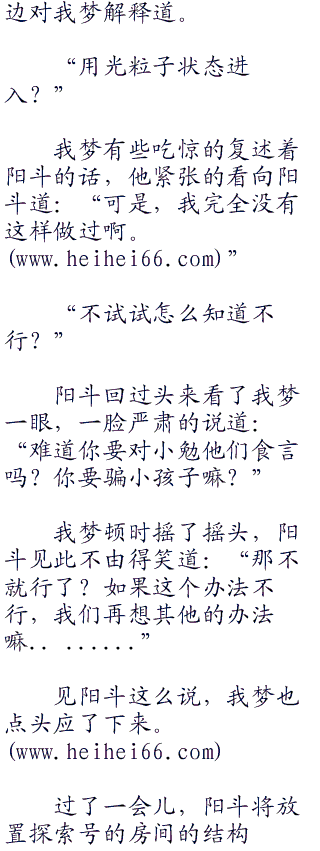 边对我梦解释道。
“用光粒子状态进
入？”
我梦有些吃惊的复述着
阳斗的话，他紧张的看向阳
斗道：“可是，我完全没有
这样做过啊。
(www.heihei66.com)”
“不试试怎么知道不
行？”
阳斗回过头来看了我梦
一眼，一脸严肃的说道：
“难道你要对小勉他们食言
吗？你要骗小孩子嘛？”
我梦顿时摇了摇头，阳
斗见此不由得笑道：“那不
就行了？如果这个办法不
行，我们再想其他的办法
嘛.. ......”
见阳斗这么说，我梦也
点头应了下来。
(www.heihei66.com)
过了一会儿，阳斗将放
置探索号的房间的结构